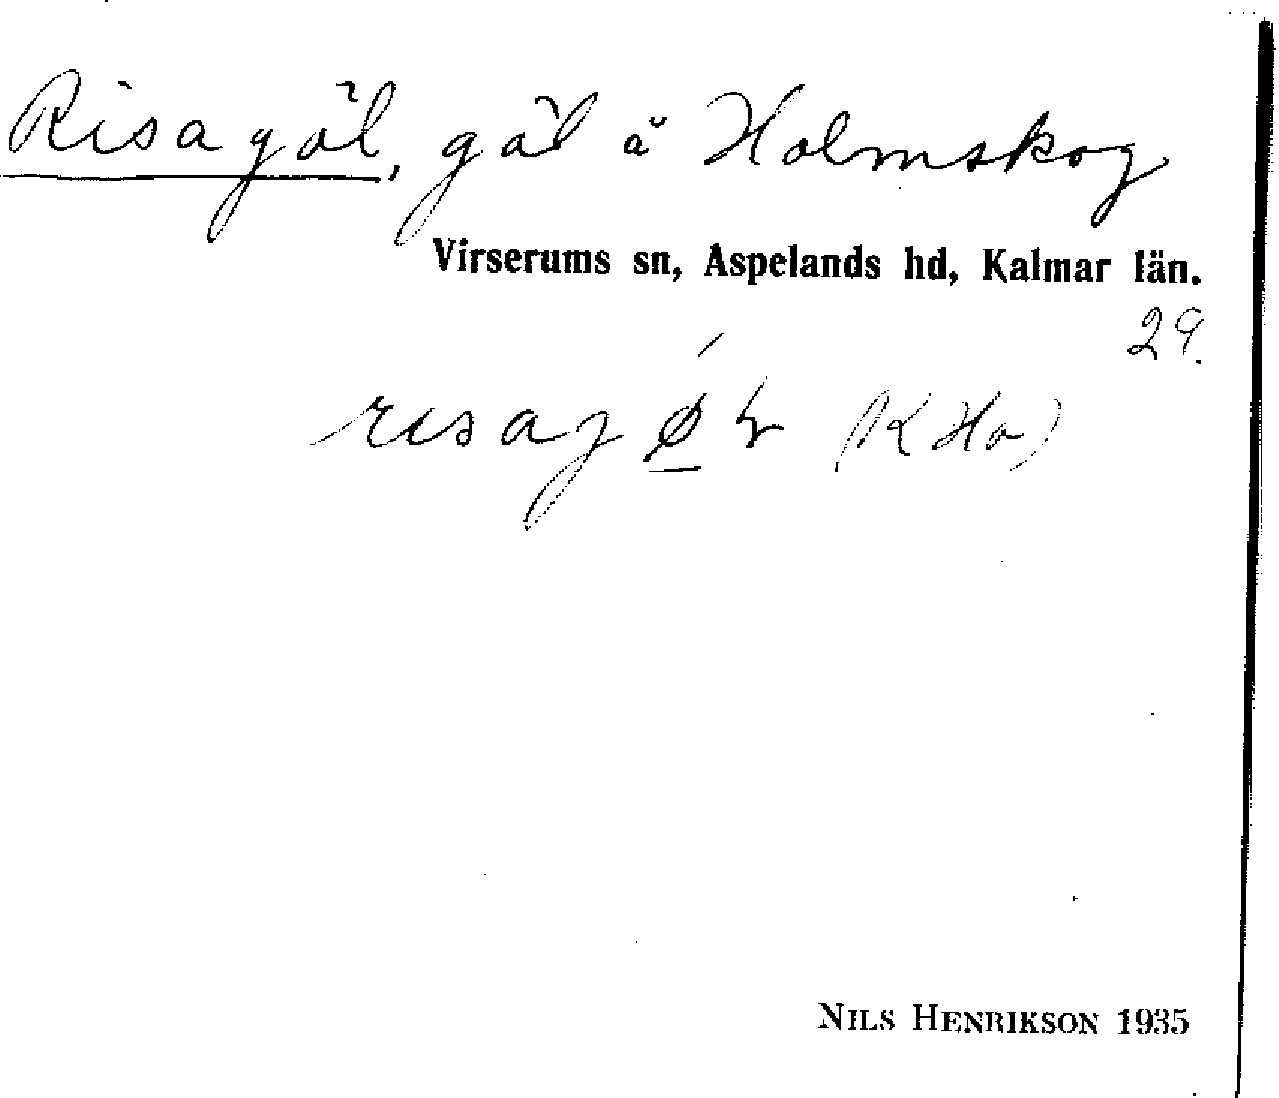 Risagöl, göl å Holmskog
Virserums sn, Aspelands hd, Kalmar län.
29.
(K Ho)
NILS HENRIKSON 1935